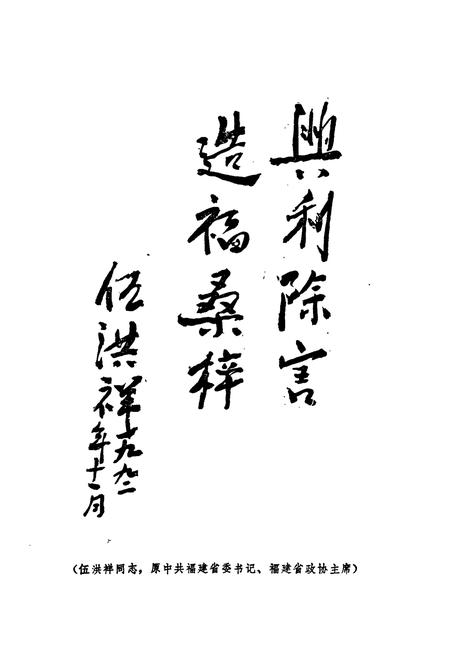 興利除害
造福桑梓
伍洪祥
一九九二
年十一月
(伍洪祥同志，原中共福建省委书记、福建省政协主席)